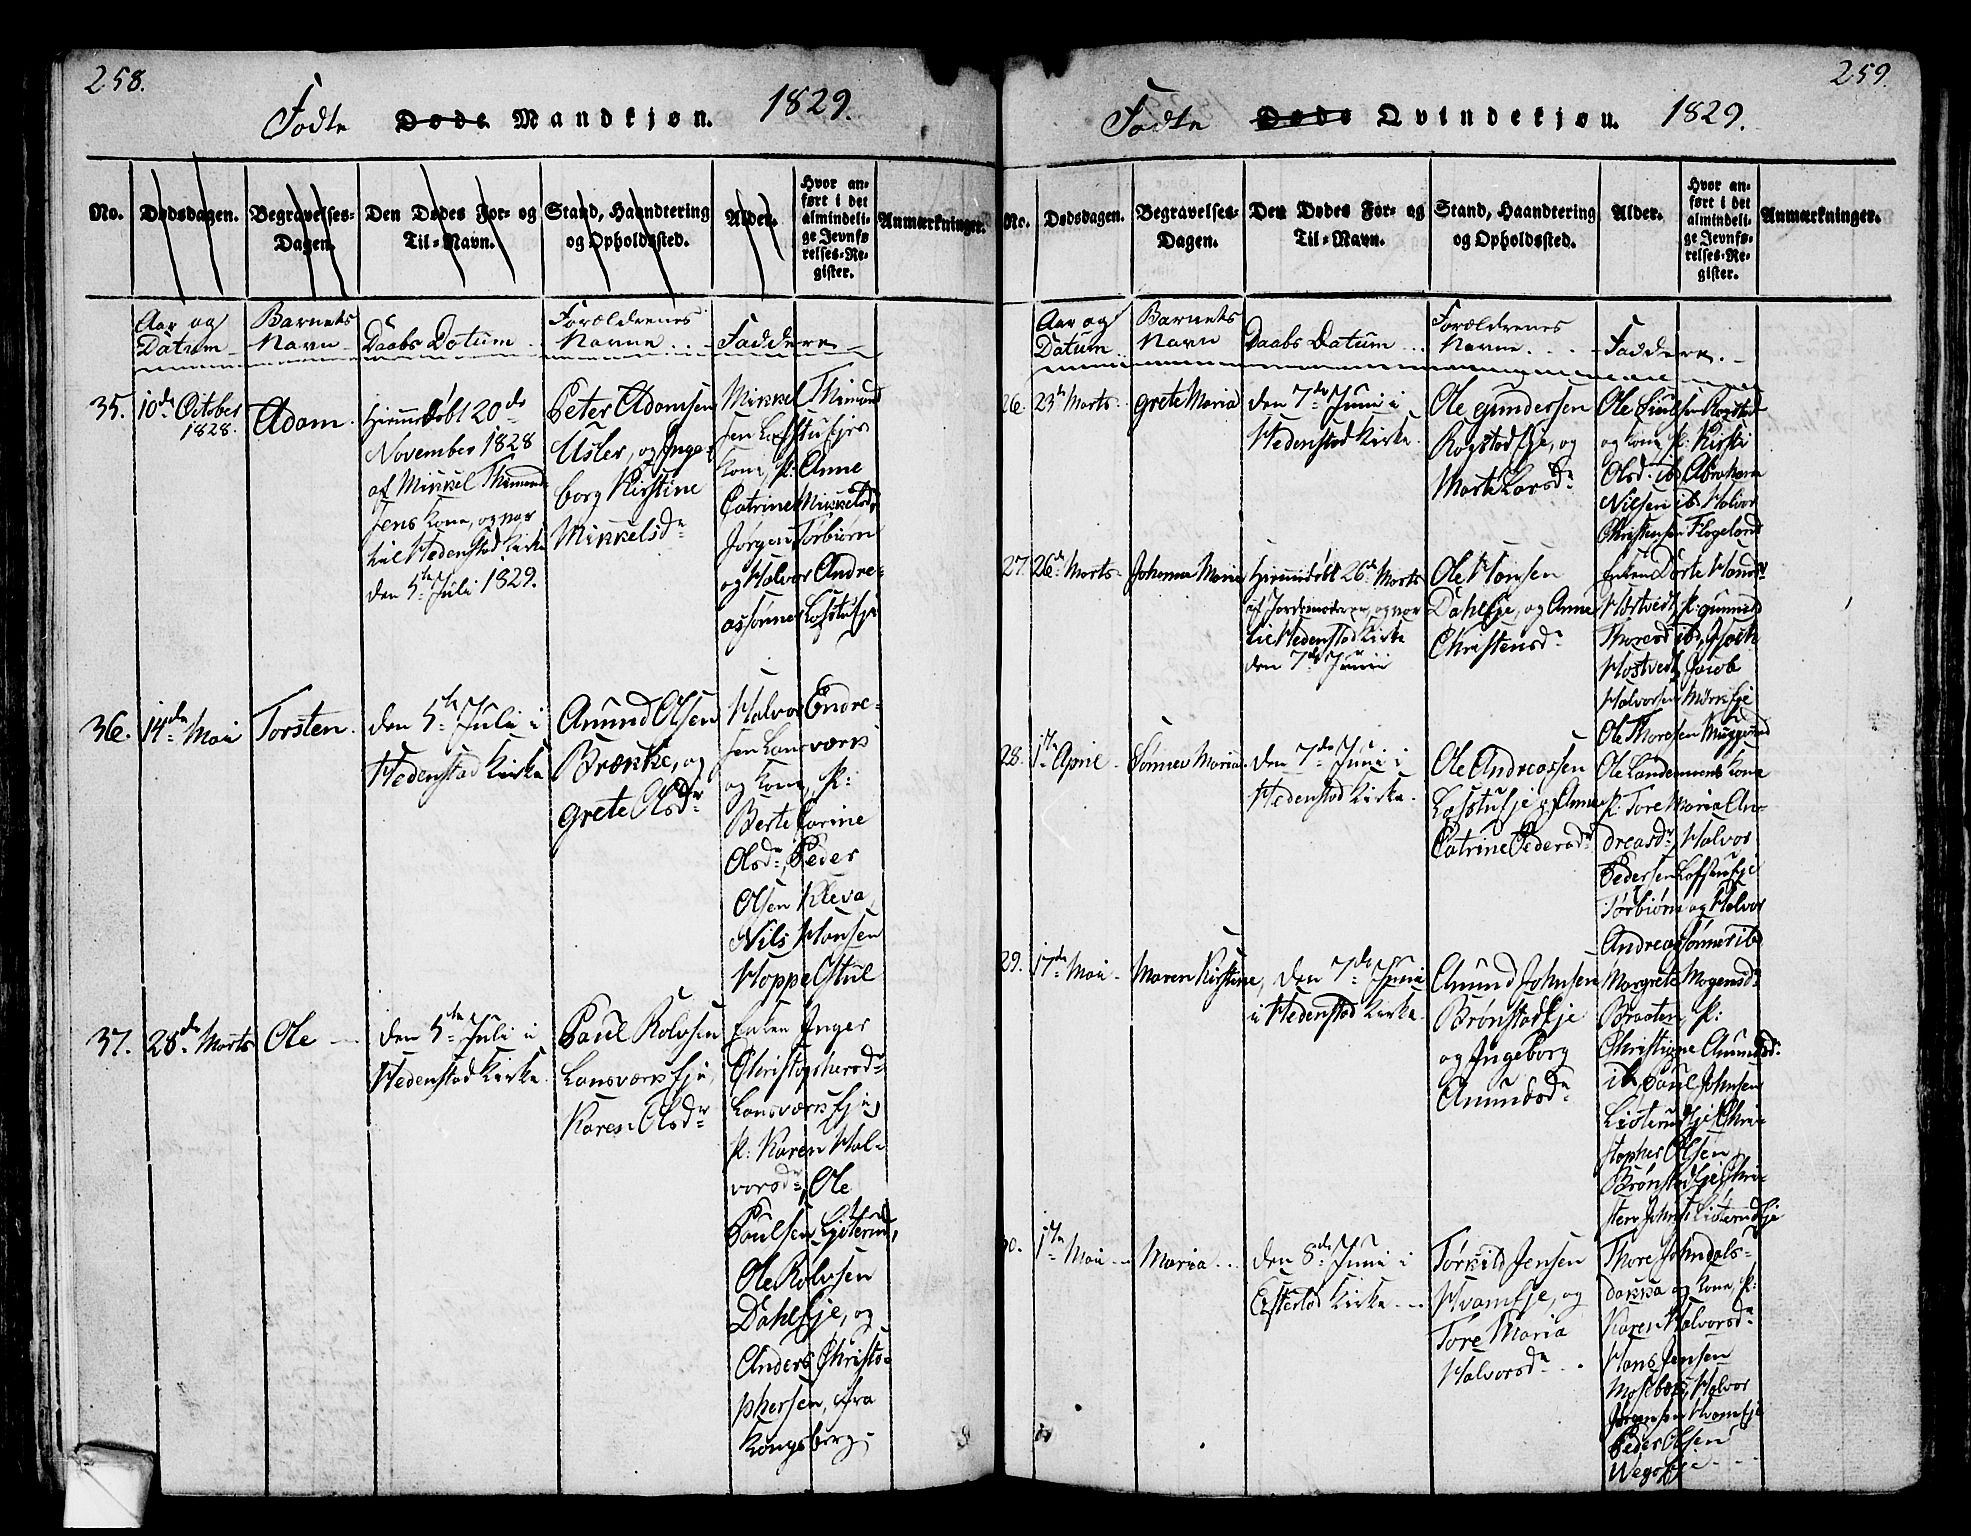 258.
Fødte Døde Mandkjøn. 1829.
No. Dødsdagen. Begravelses-Dagen. Den Dødes For- og Til-Navn. Stand, Haandtering og Opholdssted. Alder. Hvor anført i det almindelige Jevnførelses-Register. Anmærkninger.
Aar og Datum
Barnets Navn
Daabs Datum
Forældrenes Navne
Faddere
35. 10de October 1828.
Adam.
Hjemmedøbt 20de
November 1828
af Mikkel
Kone, og var
til Hedenstad Kirke
den 5te Juli 1829.
Peter Adamsen
Usler, og Inge-
borg Kirstine
Mikkelsdr
Mikkel
sen Lofstufjer
Kone, p: Anne
Catrine Mikkelsdr
Jørgen, Torbiørn
og Halvor Andre-
assønner Lofstufje
36. 14de Mai
Torsten.
den 5te Juli i
Hedenstad Kirke
Amund Olsen
Brænke, og
Grete Olsdr
Halvor Endre-
sen Lansværk
og Kone, p:
Berte Carine
Olsdr, Peder
Olsen Kleva,
Nils Hansen
Hoppestul
37. 28de Marts
Ole
den 5te Juli i
Hedenstad Kirke.
Paul Rolvsen
Lansværkseje,
Karen Olsdr
Enken Inger
Christophersdr
Lansværkseje,
p: Karen Hal-
vorsdr, Ole
Paulsen Listerud,
Ole Rolvsen
Dahleje, og
Anders Christo-
phersen, fra
Kongsberg.
259.
Fødte Døde Qvindekjøn. 1829.
No. Dødsdagen. Begravelses-Dagen. Den Dødes For- og Til-Navn. Stand, Haandtering og Opholdssted. Alder. Hvor anført i det almindelige Jevnførelses-Register. Anmærkninger.
Aar og Datum
Barnets Navn
Daabs Datum
Forældrenes Navne
Faddere.
26. 23de Marts
Grete Maria
den 7de Juni i
Hedenstad Kirke.
Ole Gundersen
Rogstadeje, og
Marte Larsdr
Ole Rogstad
og Kone p: Kirsti
Olsd. ib. Abraham
Nilsen ib. Halvor
Christensen Flogeland
27. 26de Marts
Johanne Maria
Hjemmedøbt 26de Marts
af Jordemoderen, og var
til Hedenstad Kirke
den 7de Junii
Ole Hansen
Dahleje, og Anne
Christensdr
Enken Dorte Hansdr
Hostvedt, p: Gunnild
Thoresd ib,
Hostvedt, Jacob
Halvorsen
Ole Thorsen
28. 1te April
Sønnev Maria
den 7de Juni i
Hedenstad Kirke.
Ole Andreassen
Lofstufje og Anne
Catrine Pedersdr
Ole Landemons Kone
p: Tore Maria An-
dreasdr, Halvor
Pedersen Lofstufje
Torbiørn og Halvor
Andreassønner ib
29. 17de Mai
Maren Kirstine,
den 7de Juni
i Hedenstad Kirke.
Amund Johnsen
Brønstadeje
og Ingeborg
Amundsdr
Margrete Mogensdr
Braaten, p:
Christine Amundsdr
ib, Paul Johnsen
Listerudeje, Chri-
stopher Olsen,
Brønstadeje, Chri-
sten Johns: Listerudeje
30. 1te Mai
Maria
den 8de Juni i
Efteløt Kirke
Torkild Jensen
Hvameje, og
Tore Maria
Halvorsdr
Thore Johndals-
dokka og Kone, p:
Karen Halvorsdr
Hans Jensen
Moseberg, Halvor
Jørgensen Hvameje
Peder Olsen